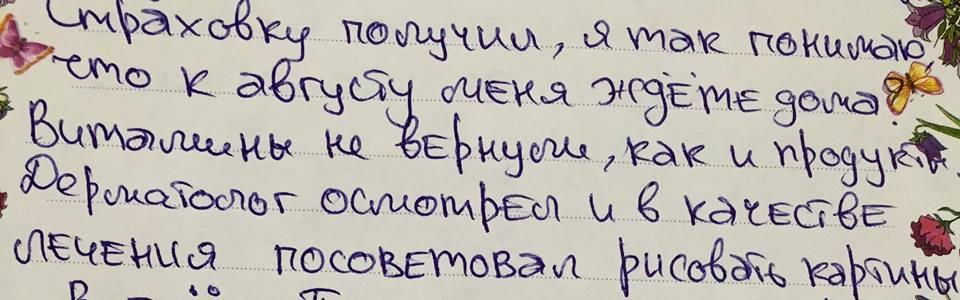 Страховку получил, я так понимаю
что к августу меня ждёте дома?
Витамины не вернули, как и продукты.
Дерматолог осмотрел и в качестве
лечения посоветовал рисовать картины